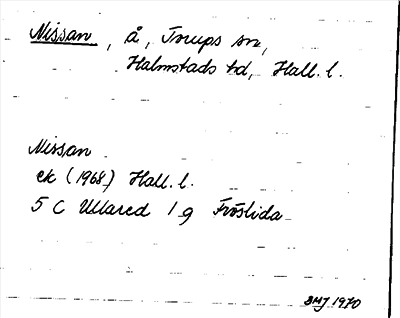 Nissan, å, Torups sn,
Halmstads hd, Hall. l.
Nissan
ek (1968) Hall. l.
5 C Ullared 1 g Fröslida
BHJ 1970